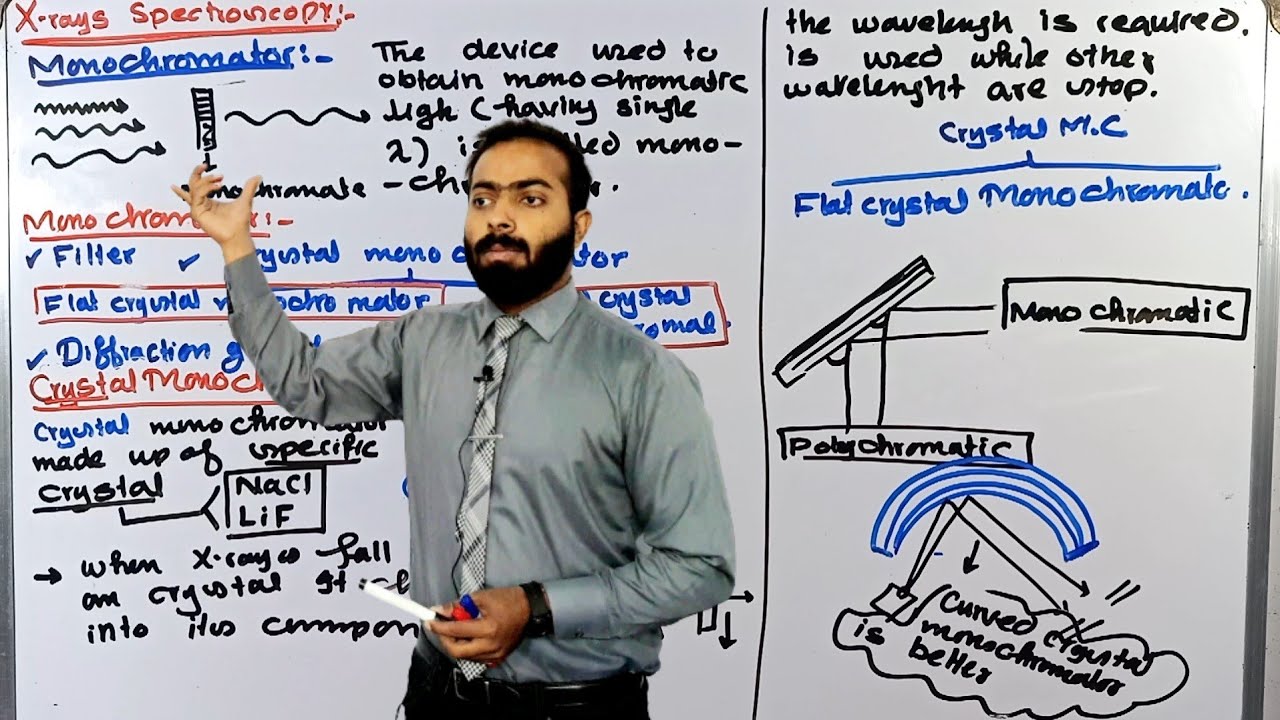 X-rays Spectroscopy:-
Monochromator:-
The device used to
obtain monochromatic
ligh (having single
λ) is mono-
chromate - ch
Mono chrom :-
✓ Filter ✓ crystal mono
Flat crystal mator
crystal
✓ Diffraction
Crystal Mono
crystal monochromator
made up of specific
crystal
NaCl
LiF
→ when X-rays fall
on crystal It
into its
the wavelengh is required.
is used while other
wavelenght are stop.
Crystal M.C
Flat crystal Monochromate.
Mono chromatic
Polychromatic
Curved crystal
monochromator
is better